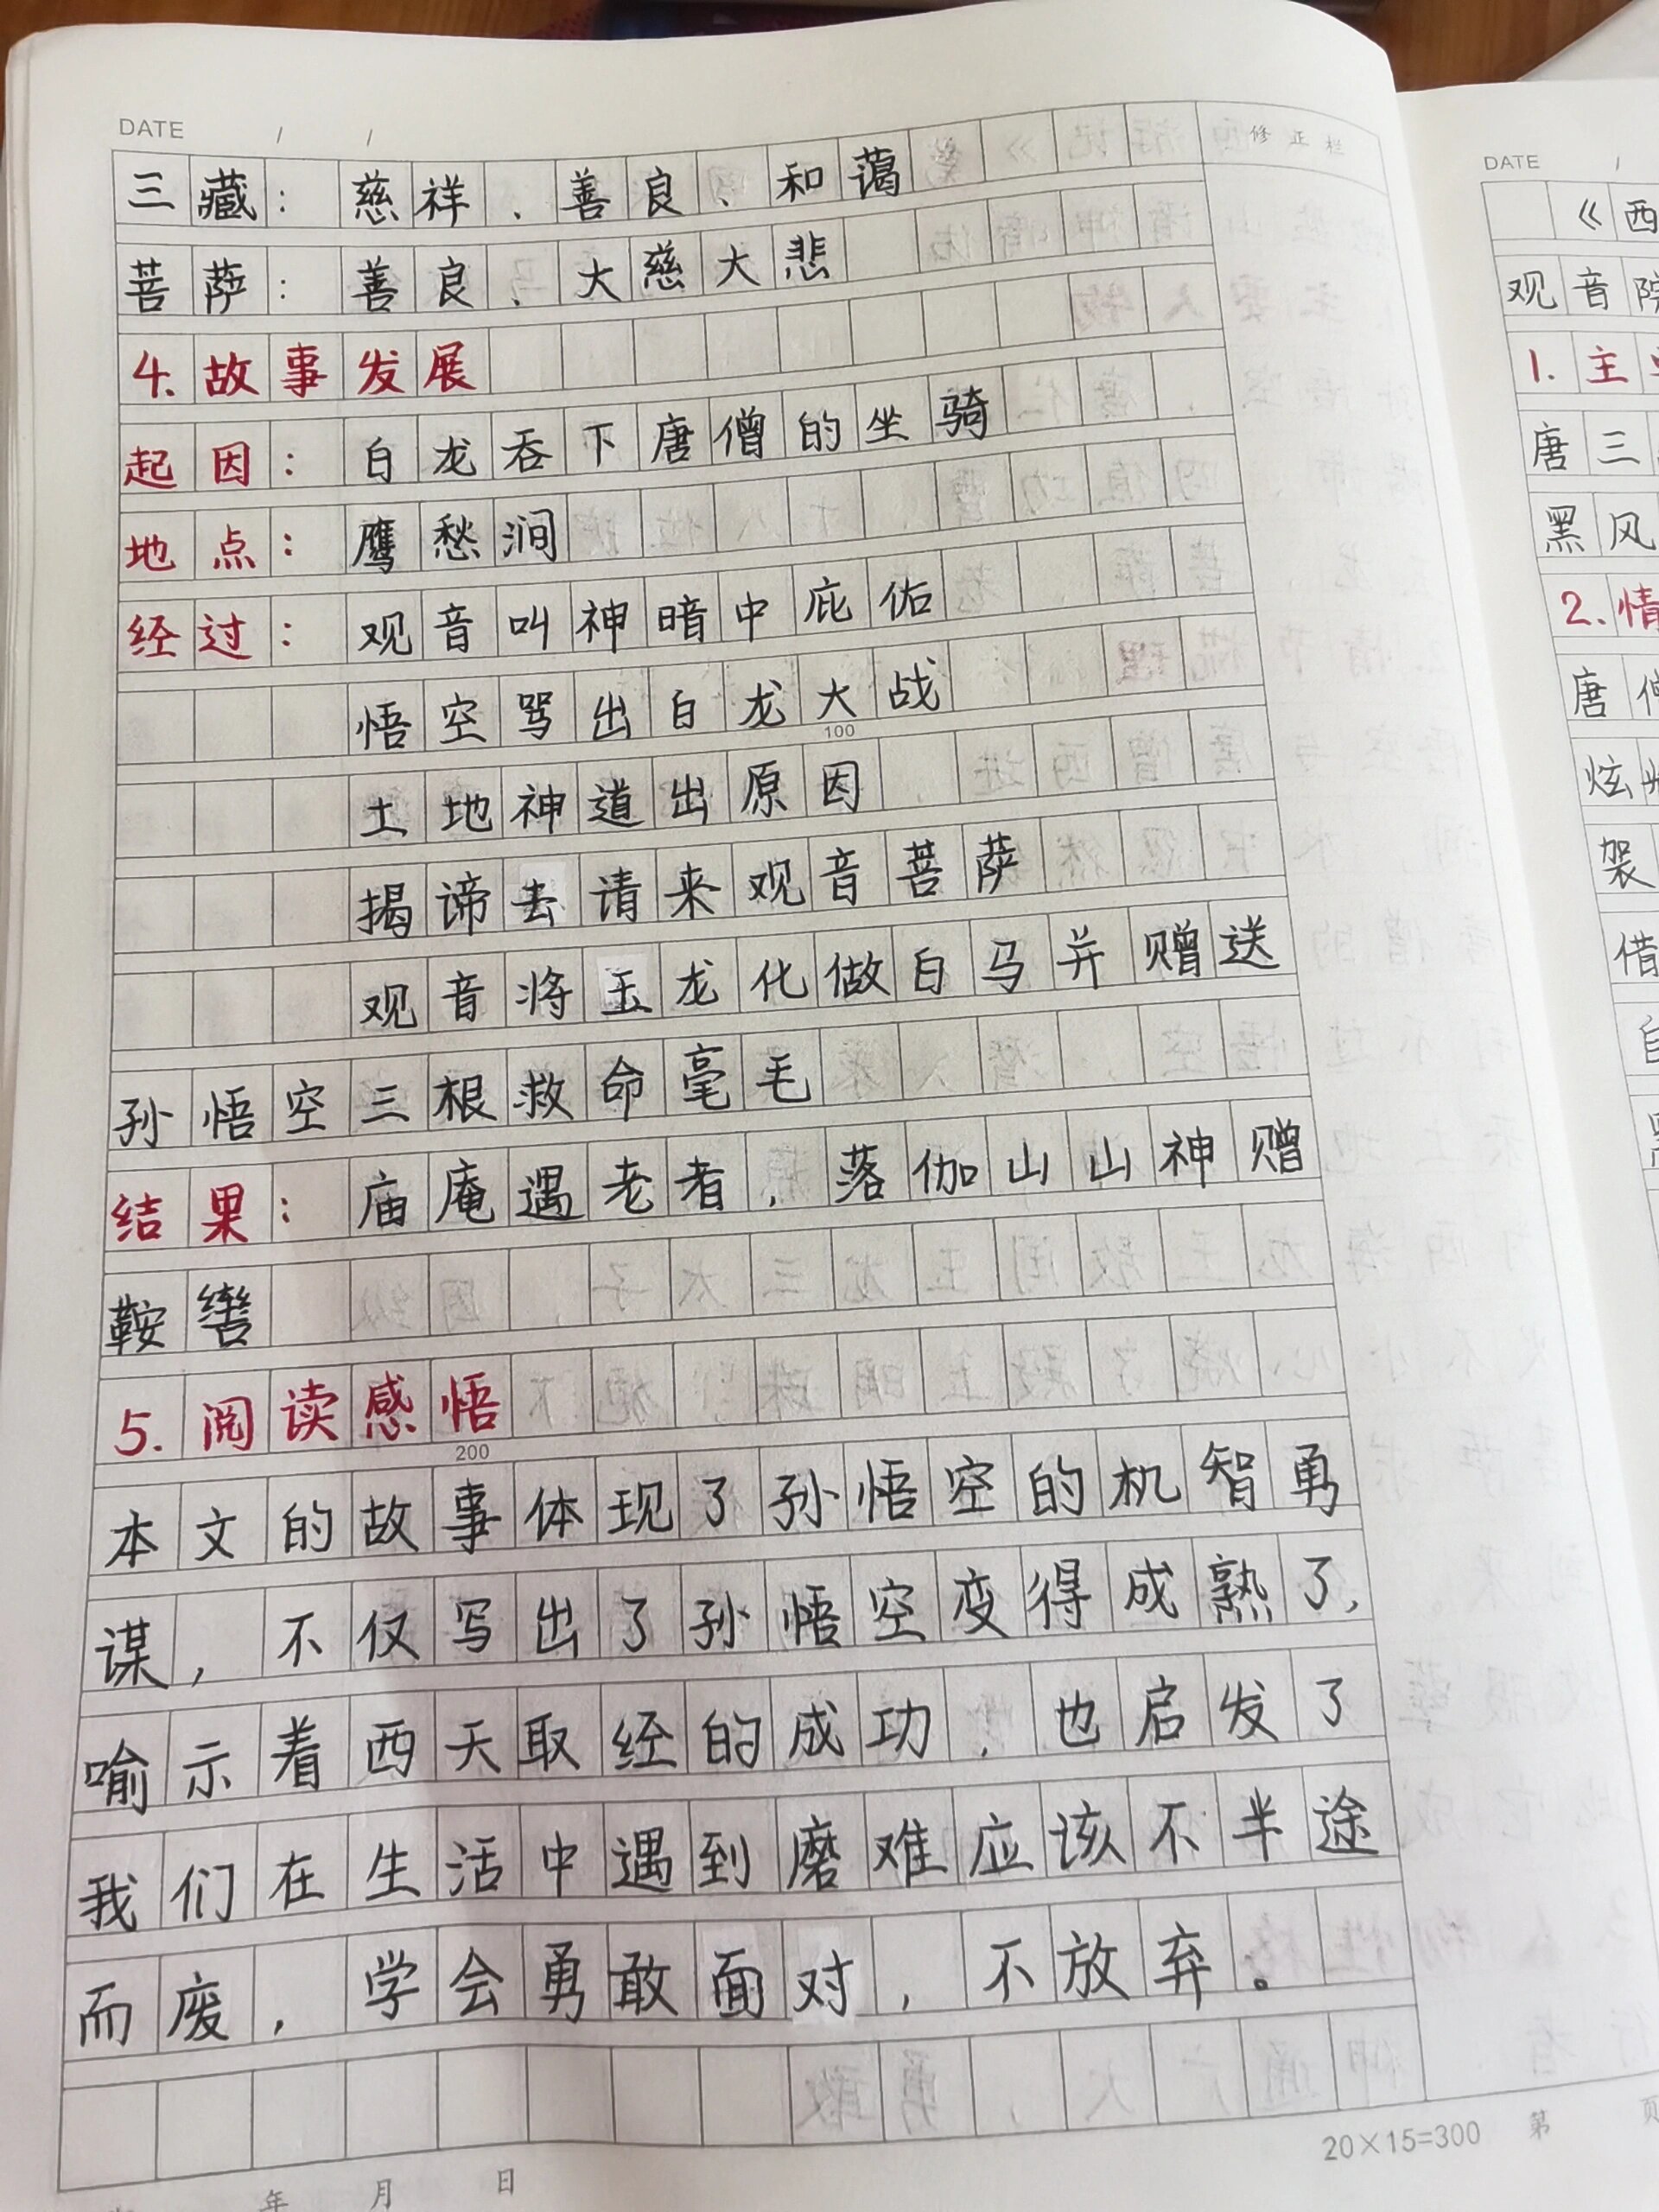 DATE / /
修正栏
三藏：慈祥、善良、和蔼
菩萨：善良、大慈大悲
4.故事发展
起因：白龙吞下唐僧的坐骑
地点：鹰愁涧
经过：观音叫神暗中庇佑
悟空骂出白龙大战
100
土地神道出原因
揭谛去请来观音菩萨
观音将玉龙化做白马并赠送
孙悟空三根救命毫毛
结果：庙庵遇老者，落伽山山神赠
鞍辔
5.阅读感悟
200
本文的故事体现了孙悟空的机智勇
谋，不仅写出了孙悟空变得成熟了，
喻示着西天取经的成功，也启发了
我们在生活中遇到磨难应该不半途
而废，学会勇敢面对，不放弃。
20×15=300 第 页
年 月 日
DATE /
《西
观音院
1.主
唐三
黑风
2.情
唐僧
炫
袈
借
自